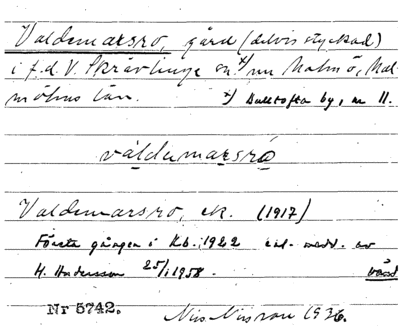 Valdemarsro, gård (delvis styckad)
i f.d. V. Skrävlinge sn. x) nu Malmö, Mal-
möhus län. x) Dalltofta by, nr 11.
våldemarsrо
Valdemarsro, ek. (1917)
Första gången i Kb. 1922 enl. medd. av
H. Andersson 25/1 1958.
Nr 5742.
Nils Nilsson 1936.